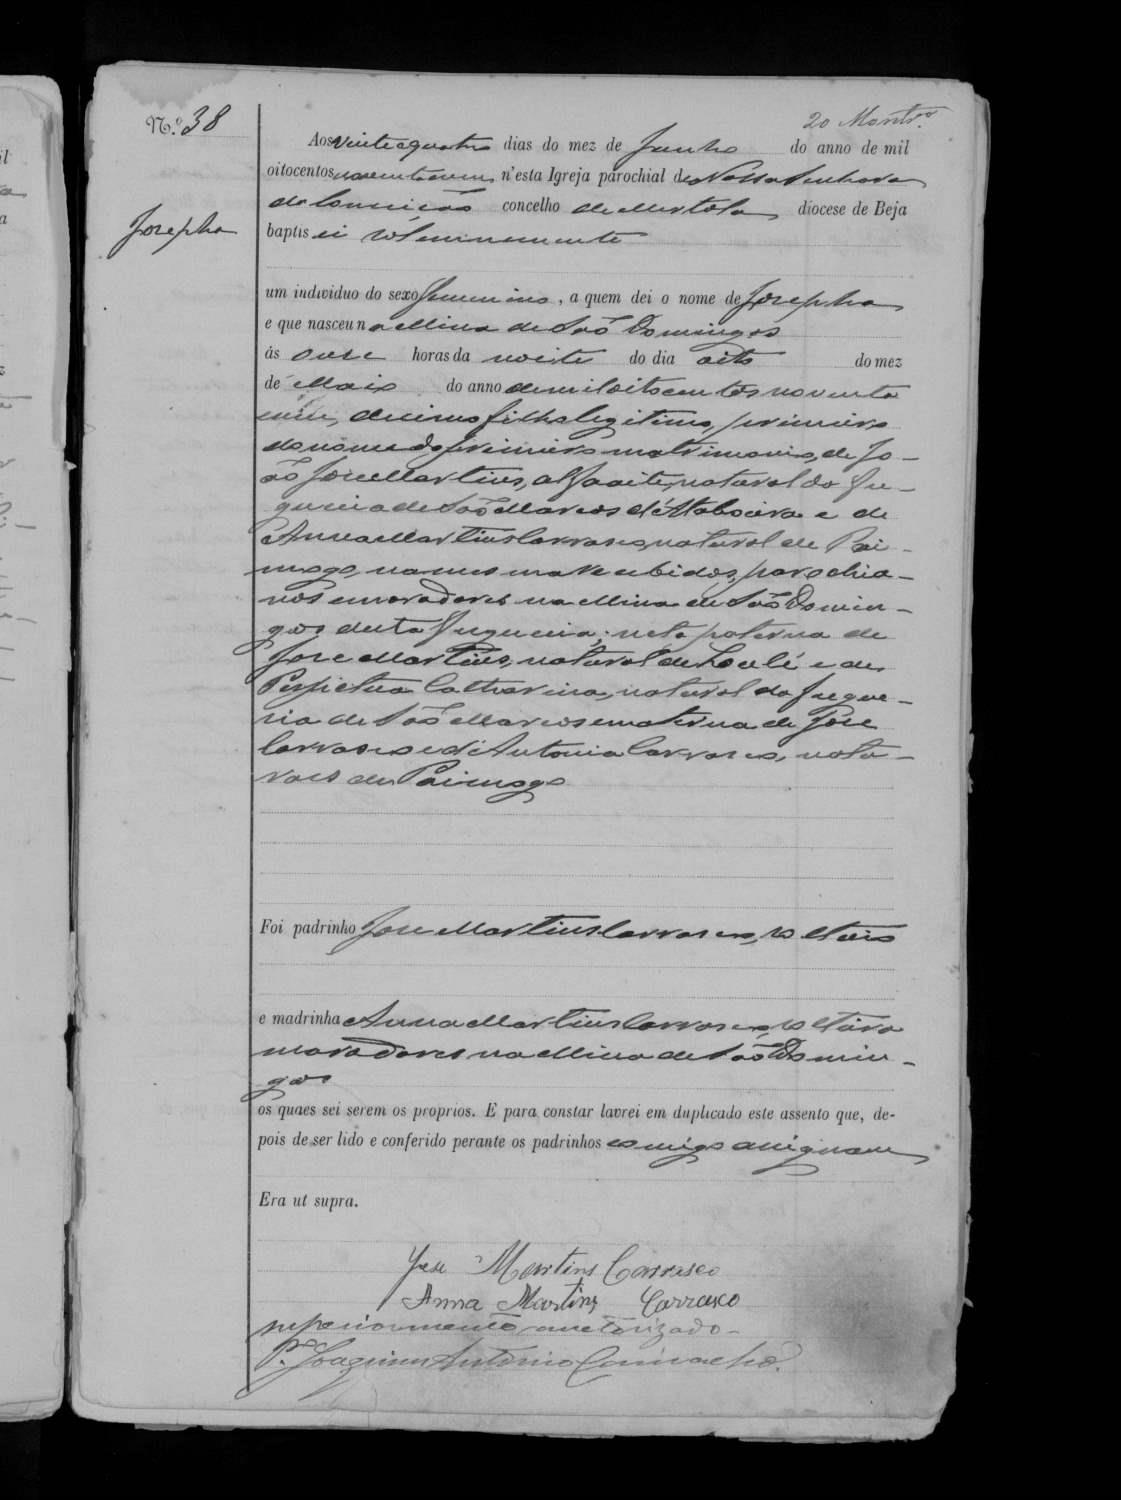 N.º 38
20 Montr.º
Aos vinte e quatro dias do mez de Junho do anno de mil
oitocentos noventa e um n'esta Igreja parochial de Nossa Senhora
da Conceição concelho de Mertola diocese de Beja
Josepha
baptisei solemnemente
um individuo do sexo femenino, a quem dei o nome de Josepha
e que nasceu na Mina de São Domingos
ás onse horas da noite do dia oito do mez
de Maio do anno de mil oitocentos noventa
e um, decimo filho legitimo, primeira
do nome do primeiro matrimonio, de Jo-
ão Jose Martins, alfaaite, natural da fre-
guesia de São Marcos d'Ataboeira e de
Anna Martins Carrasco, natural de Pai-
mogo, recebidos, parochia-
nos e moradores na Mina de São Domin-
gos desta freguesia; neta paterna de
Jose Martins, natural de Loulé e de
Perpetua Catharina, natural da fregue-
sia de São Marcos e materna de José
Carrasco e d'Antonia Carrasco, natu-
raes de Paimogo
Foi padrinho Jose Martins Carrasco, solteiro
e madrinha Anna Martins Carrasco, solteira
moradores na Mina de São Domin-
gos
os quaes sei serem os proprios. E para constar lavrei em duplicado este assento que, de-
pois de ser lido e conferido perante os padrinhos comigo assignam
Era ut supra.
Jose Martins Carrasco
Anna Martins Carrasco
superiormente auctorizado
P.e Joaquim Antonio Camacho.